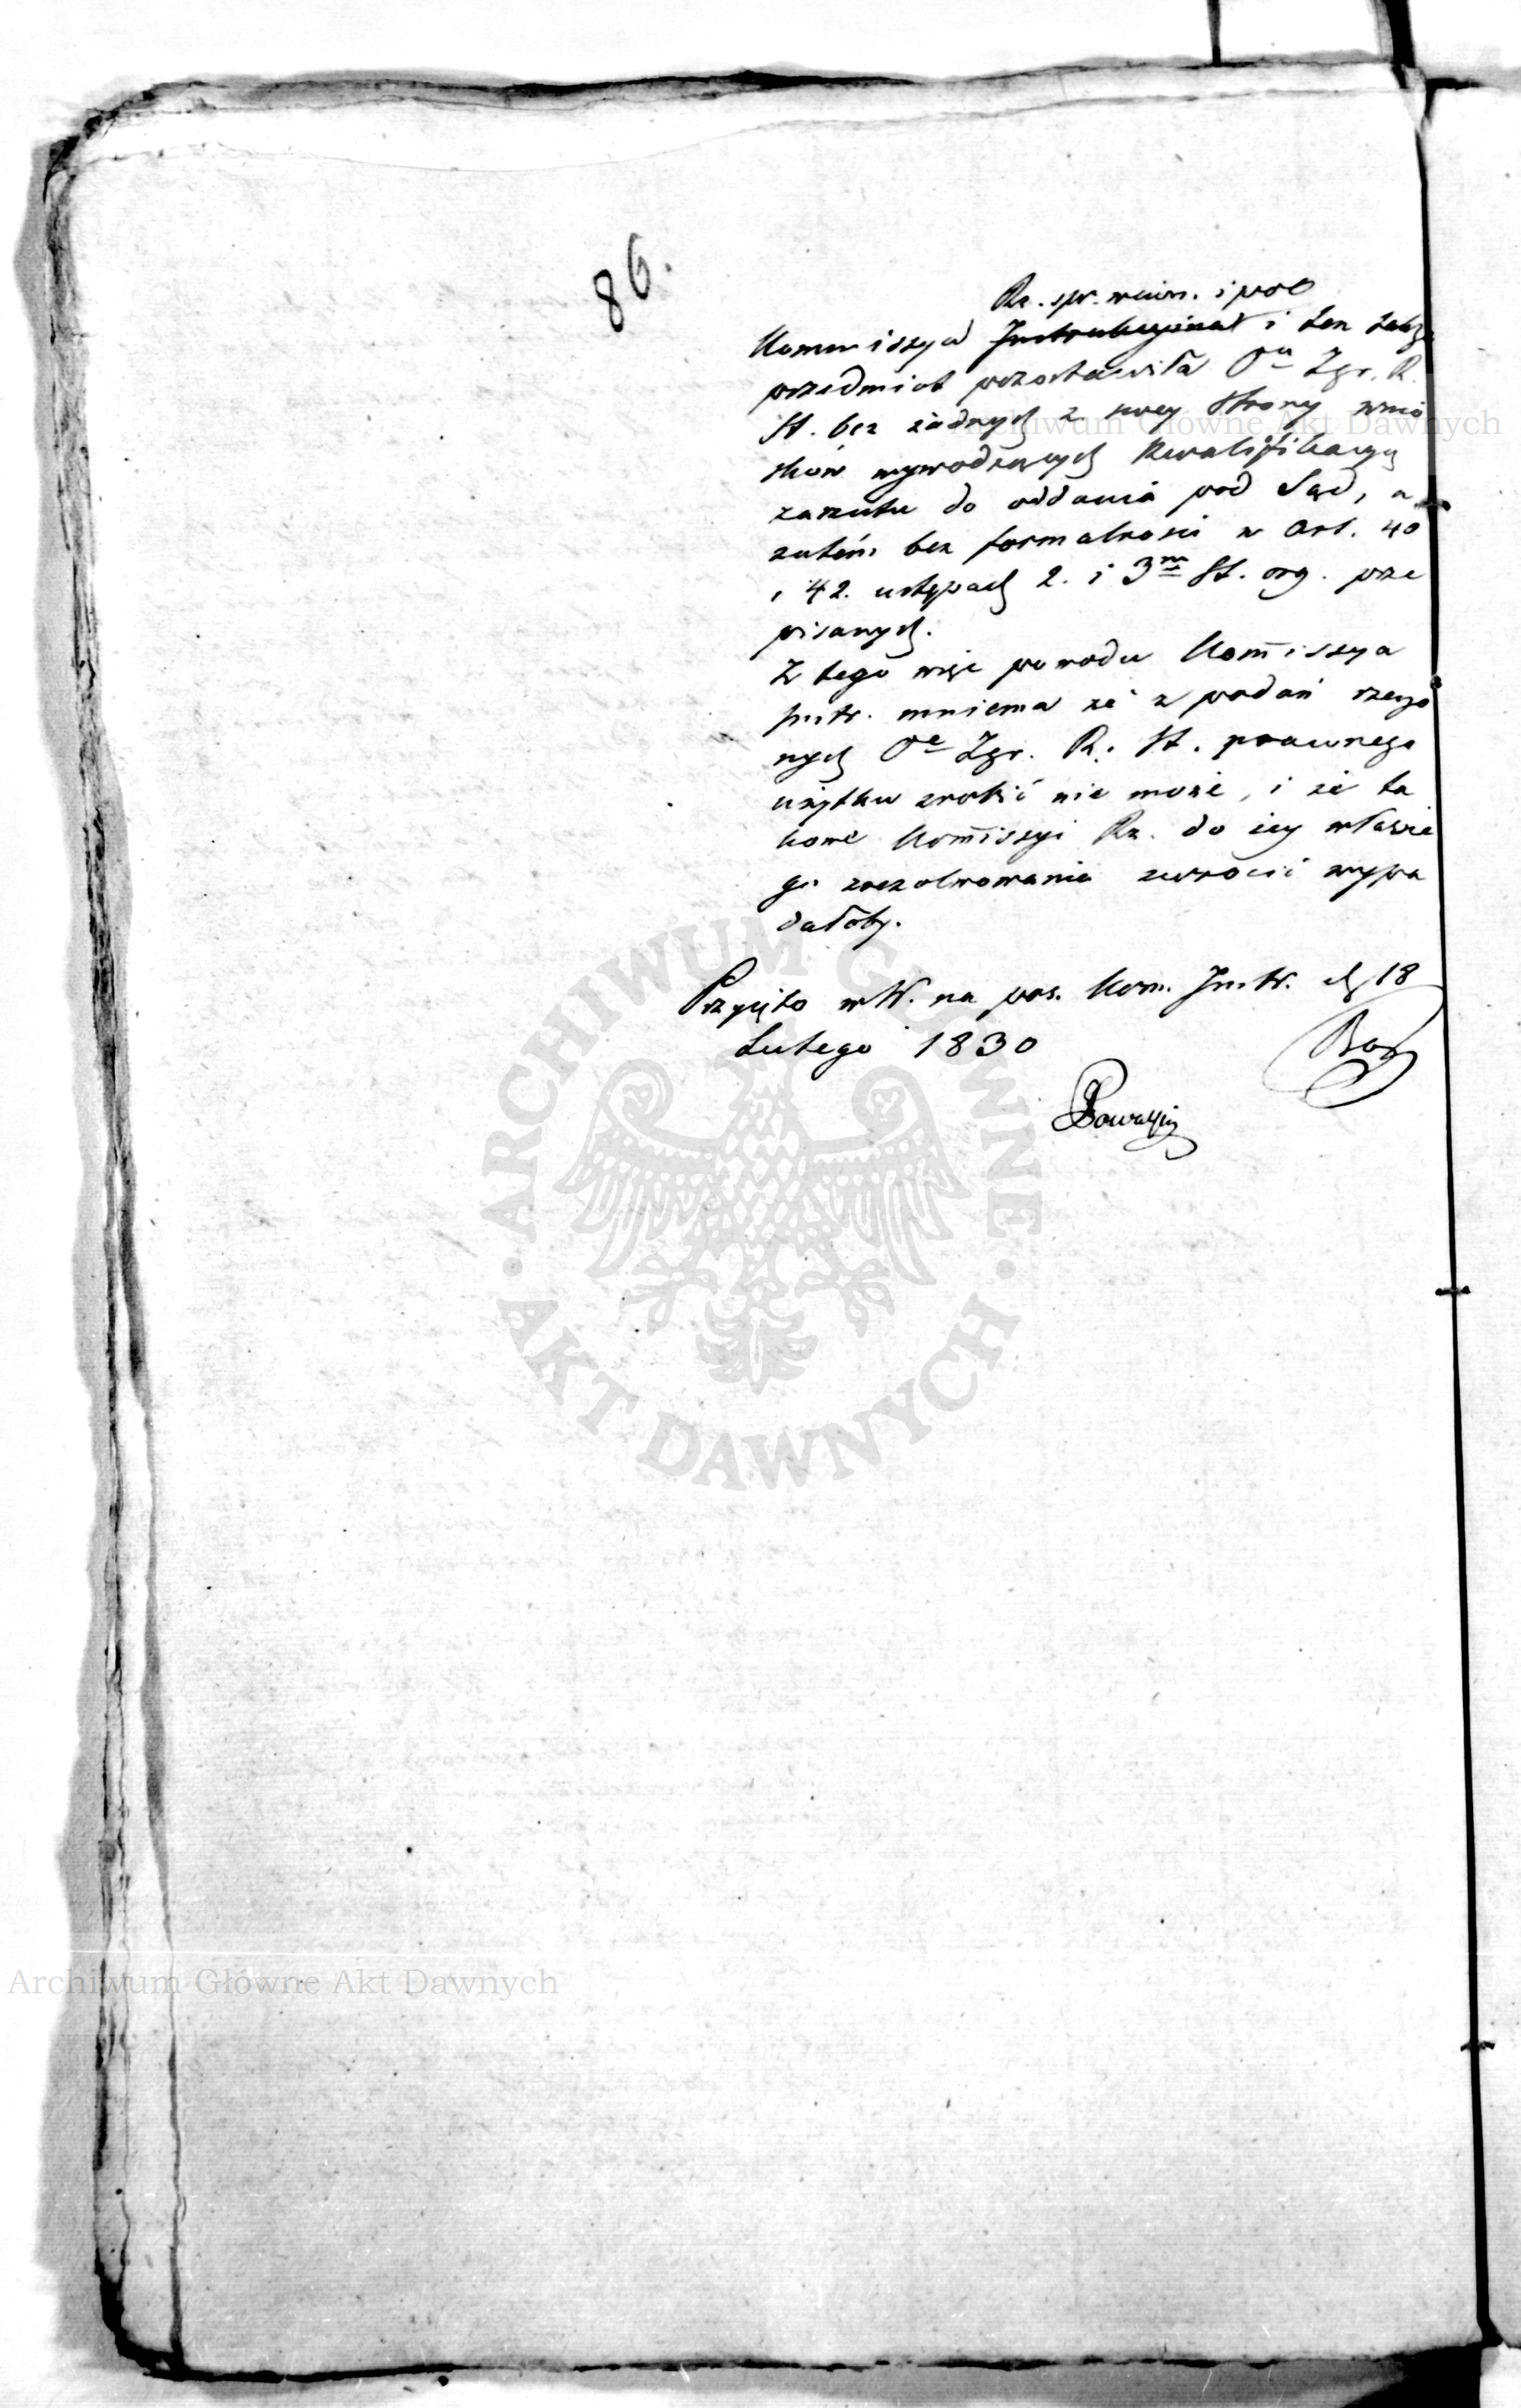 86.
Rz. spr. wewn. i pol
Kommissya Instrukcyina i ten także
przedmiot przedstawiła Ou Zgr. R.
St. bez żadnych z swey strony wnio
sków wywodzących kwalifikacyą
zarzutu do oddania pod Sąd, a
zatém bez formalności w Art. 40
i 42. ustępach 2. i 3m St. org. prze
pisanych.
Z tego więc powodu Kom̄issya
Instr. mniema że z podań rzeczo
nych Oe Zgr. R. St. prawnego
użytku zrobić nie może, i że ta
kowe Kom̄issyi Rz. do iey właścíwe
go zrezolwowania zwrócić wypa
dałoby.
Przyięto w W. na pos. Kom. Instr. d. 18
Lutego 1830
ARCHIWUM GŁÓWNE AKT DAWNYCH
Archiwum Główne Akt Dawnych
Archiwum Główne Akt Dawnych